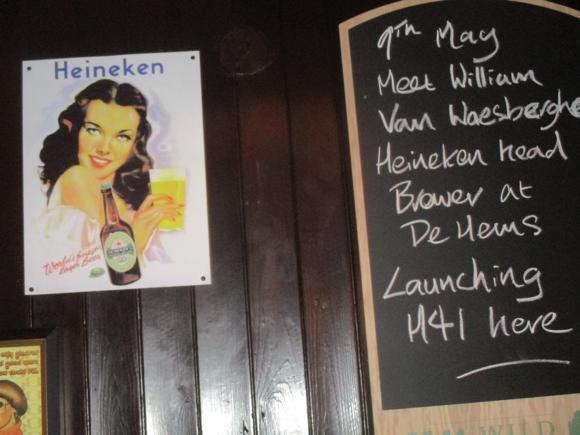 Heineken
World's finest
Lager Beer
9TH May
Meet William
Van Waesberghe
Heineken Head
Brewer at
De Hems
Launching
H41 here
WILD